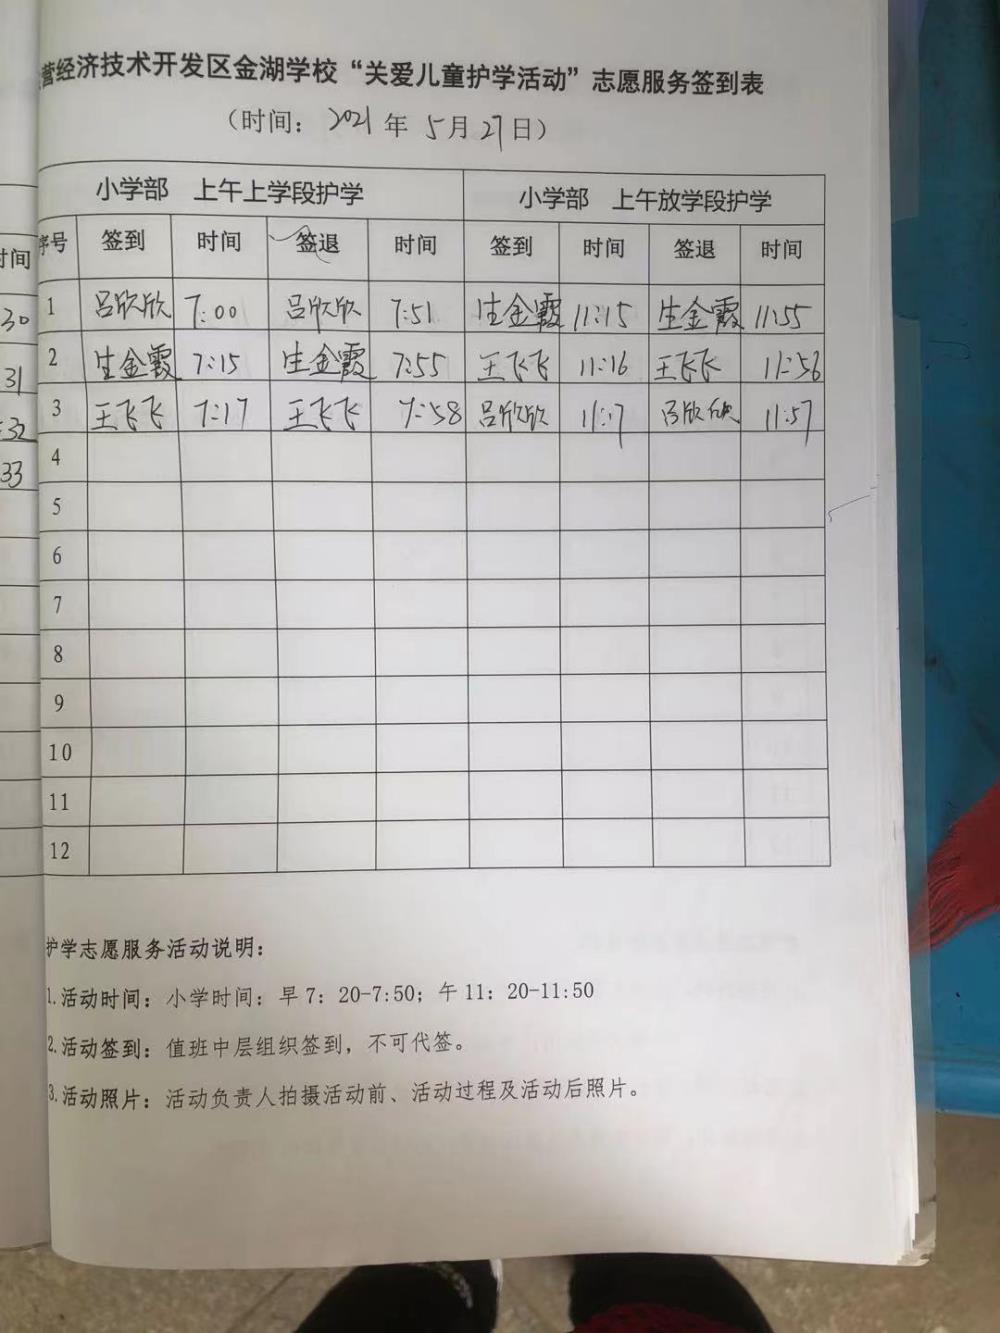 营经济技术开发区金湖学校“关爱儿童护学活动”志愿服务签到表
（时间：2021年5月27日）
小学部 上午上学段护学 小学部 上午放学段护学
时间 序号 签到 时间 签退 时间 签到 时间 签退 时间
30 1 吕欣欣 7:00 吕欣欣 7:51 生金霞 11:15 生金霞 11:55
31 2 生金霞 7:15 生金霞 7:55 王飞飞 11:16 王飞飞 11:56
:32 3 王飞飞 7:17 王飞飞 7:58 吕欣欣 11:17 吕欣欣 11:57
33 4
5
6
7
8
9
10
11
12
护学志愿服务活动说明：
1.活动时间：小学时间：早7：20-7:50；午11：20-11:50
2.活动签到：值班中层组织签到，不可代签。
3.活动照片：活动负责人拍摄活动前、活动过程及活动后照片。